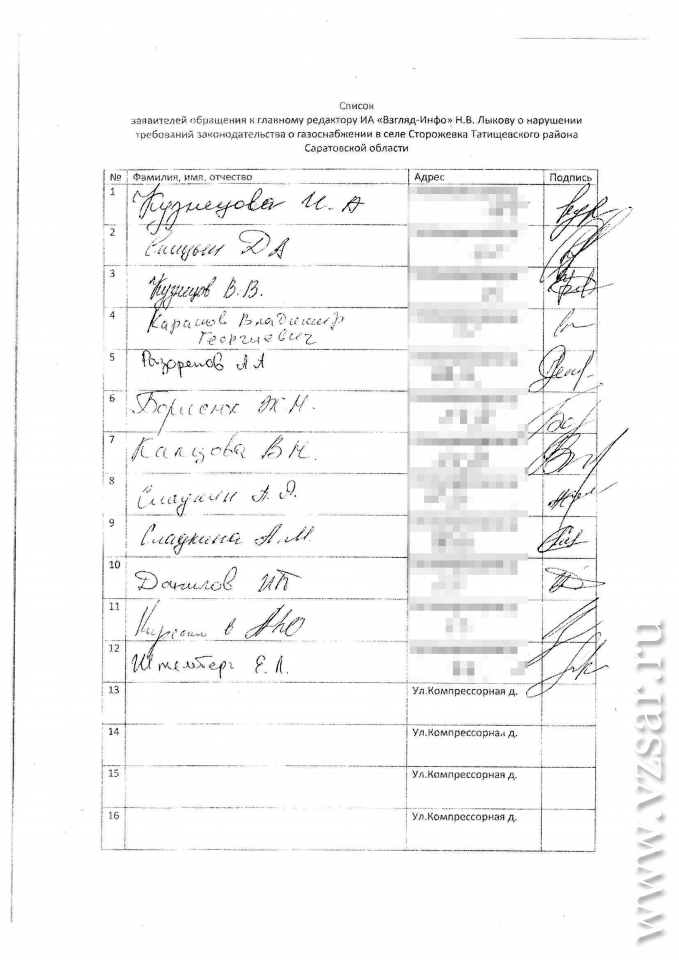 Список
заявителей обращения к главному редактору ИА «Взгляд-Инфо» Н.В. Лыкову о нарушении
требований законодательства о газоснабжении в селе Сторожевка Татищевского района
Саратовской области
№ Фамилия, имя, отчество Адрес Подпись
1 Кузнецова И. А
2 Синицын Д А
3 Кузнецов В. В.
4 Карамов Владимир
Георгиевич
5 А А
6 Борисюк Ж. Н.
7 Капцова В Н.
8 Сладкин А. Я.
9 Сладкина А. М.
10 Данилов И П
11
12 Штемберг Е. Л.
13 Ул.Компрессорная д.
14 Ул.Компрессорная д.
15 Ул.Компрессорная д.
16 Ул.Компрессорная д.
www.vzsar.ru